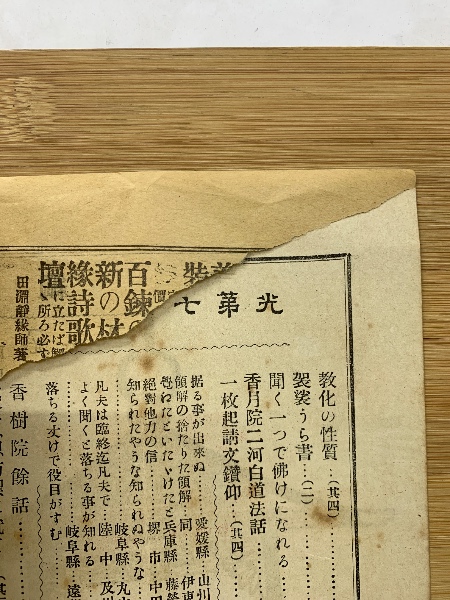 光第七
教化の性質…(其四)
袈裟うら書…(二)
聞く一つで佛けになれる
香月院二河白道法話
一枚起請文鑽仰…(其四)
据る事が出來ぬ…愛媛縣 山川
領解の捨たりた領解 同 伊東
兵庫縣 藤
絕對他力の信…堺市 中田
知られたやうな知られぬやうな
岐阜縣 丸
凡夫は臨終迄凡夫で 陸中 及川
よく聞くと落ちる事が知れる
岐阜縣 遠
落ちる丈けで役目がすむ
香樹院餘話
裝
百鍊の
新の材
緣詩歌
壇に立たば
く所ろ必ず
田淵靜緣師著